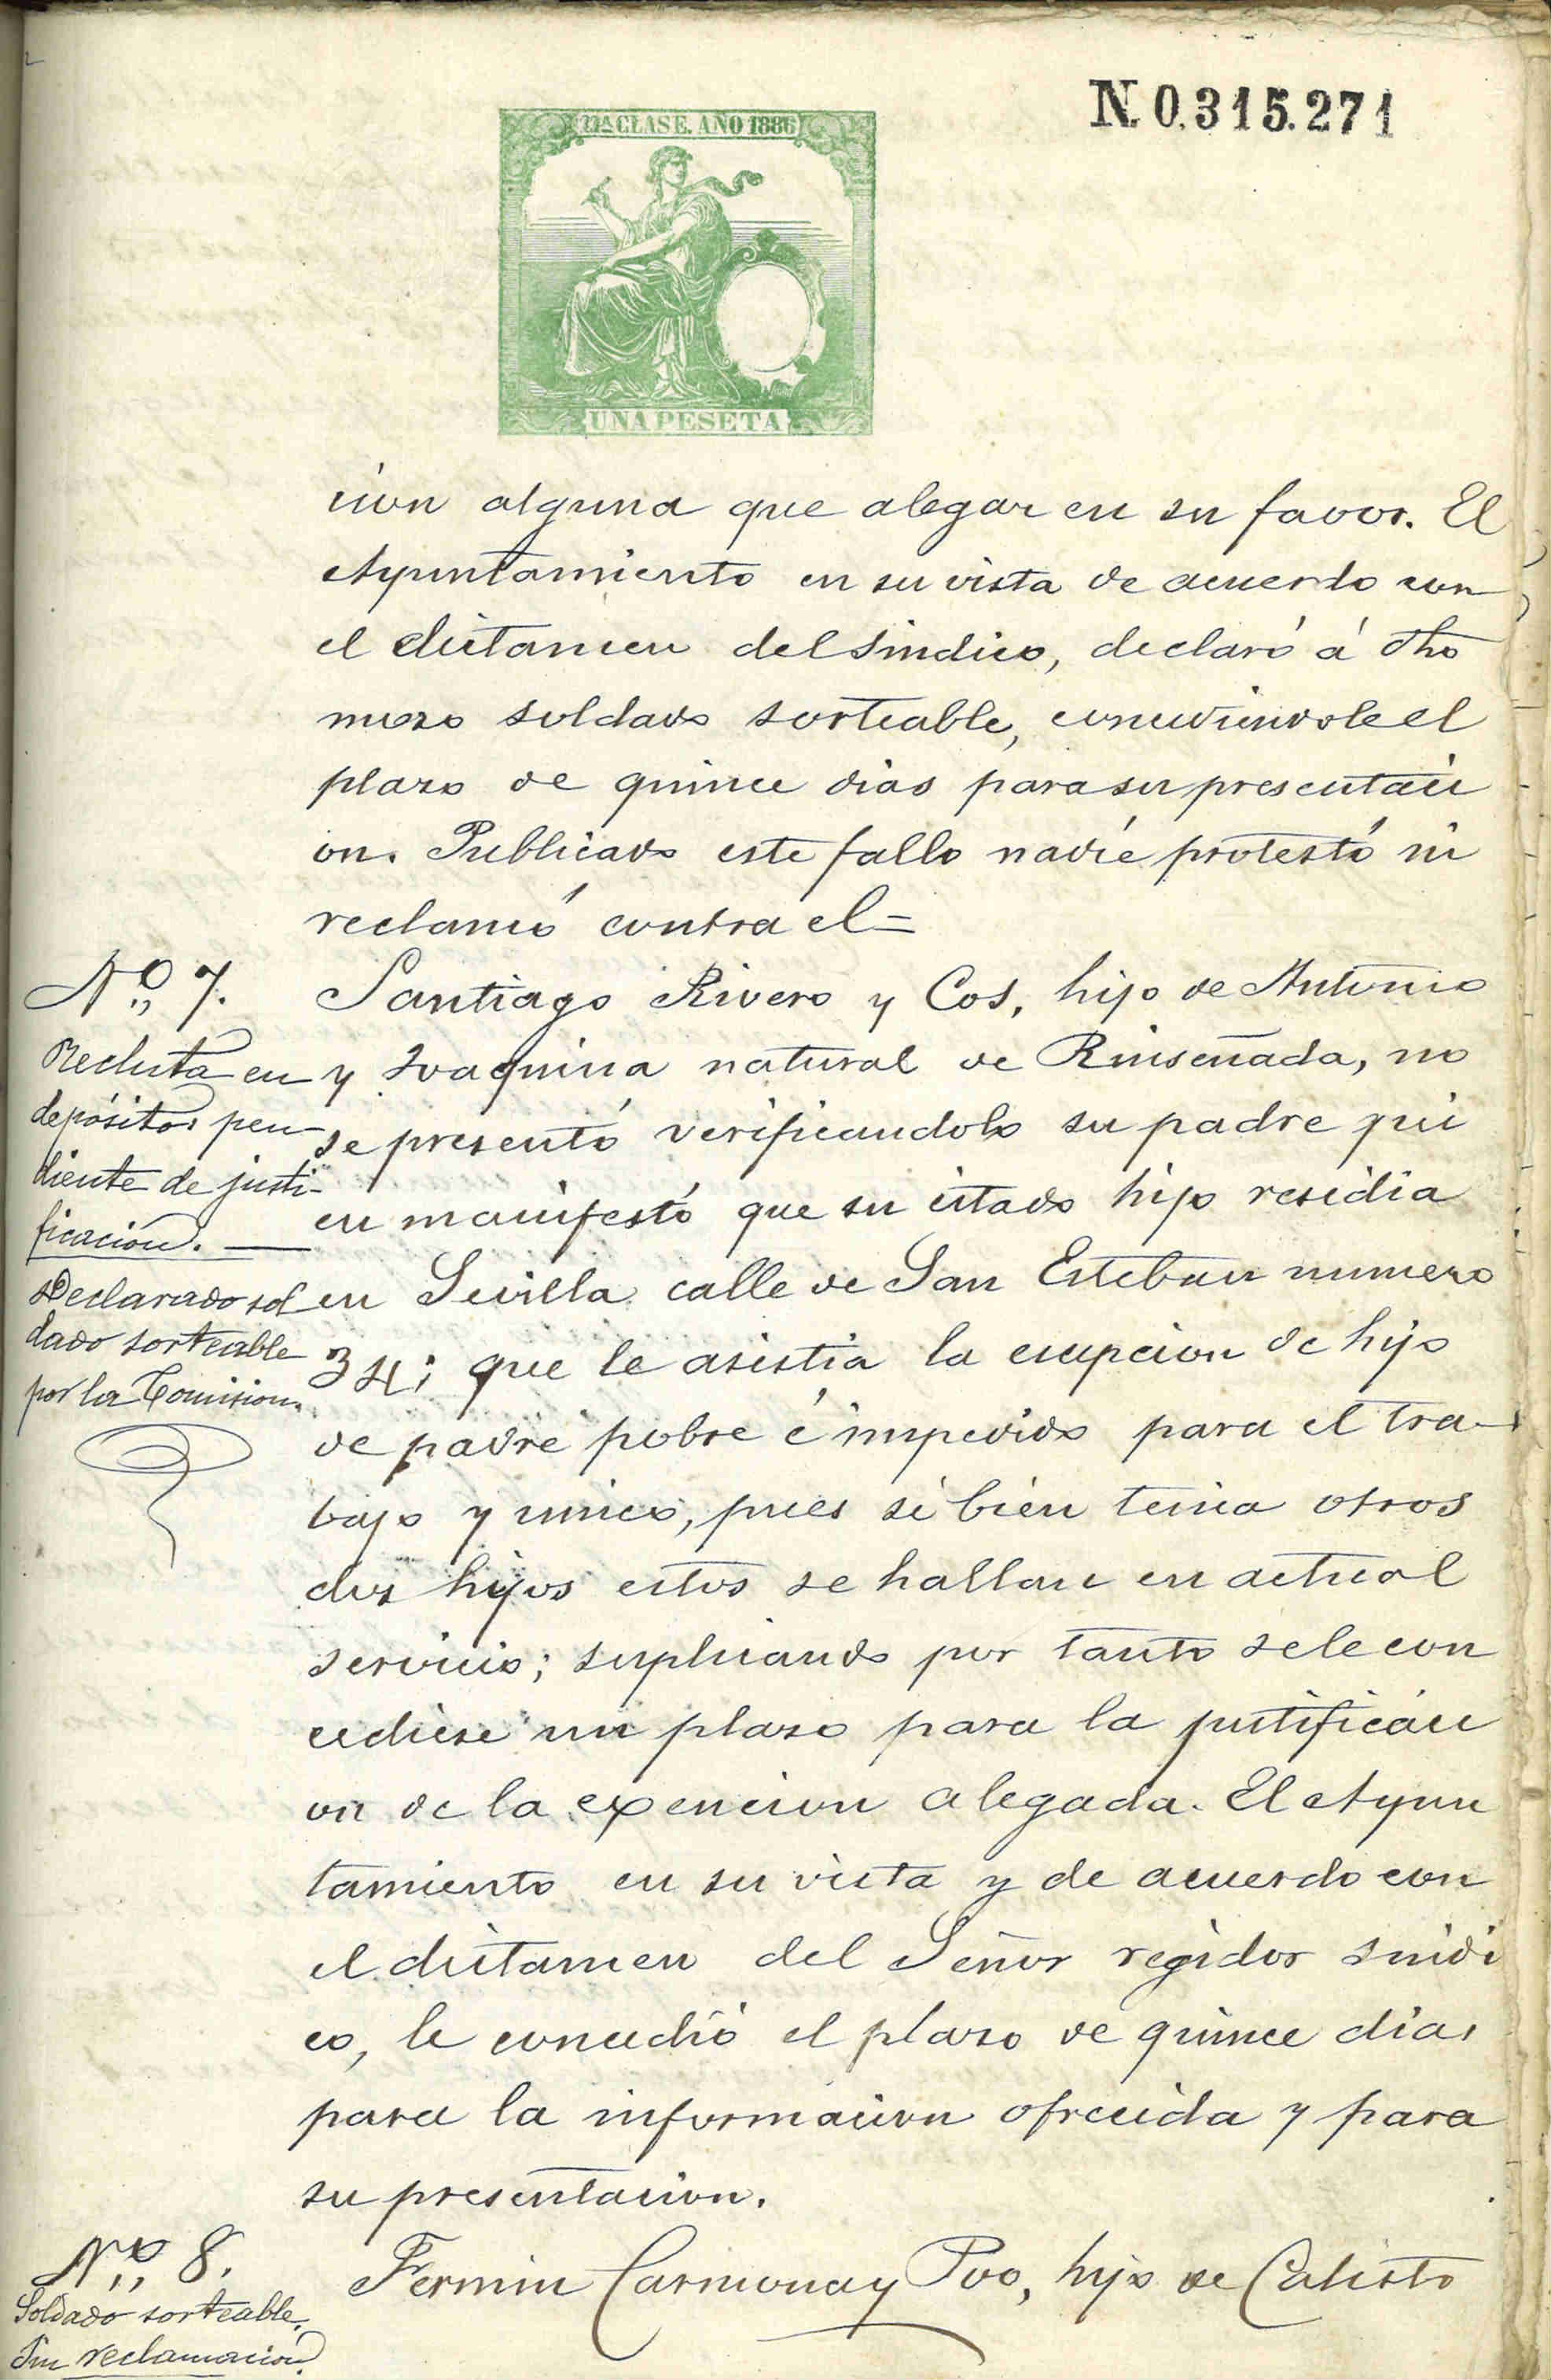 N. 0.315.271
11ª CLASE. AÑO 1886
UNA PESETA
cion alguna que alegar en su favor. El
Ayuntamiento en su vista de acuerdo con
el dictamen del Sindico, declaró á dho
mozo soldado sorteable, concediendole el
plazo de quince dias para su presentaci
on. Publicado este fallo nadie protestó ni
reclamó contra el=
Nº 7.
Recluta en
depósito, pen-
diente de justi-
ficación.
Declarado sol
dado sorteable
por la Comision.
Santiago Rivero y Cos, hijo de Antonio
y Joaquina natural de Rinseñada, no
se presentó verificandolo su padre qui
en manifestó que su citado hijo residia
en Sevilla calle de San Esteban numero
34; que le asistia la escepcion de hijo
de padre pobre é impedido para el tra-
bajo y unico, pues si bien tenia otros
dos hijos estos se hallan en actual
servicio; suplicando por tanto se le con
cediese un plazo para la justificaci
on de la exencion alegada. El Ayun
tamiento en su vista y de acuerdo con
el dictamen del Señor regidor sindi
co, le concedió el plazo de quince dias
para la informacion ofrecida y para
su presentacion.
Nº 8.
Soldado sorteable.
Sin reclamación.
Fermin Carmona y Poo, hijo de Calisto